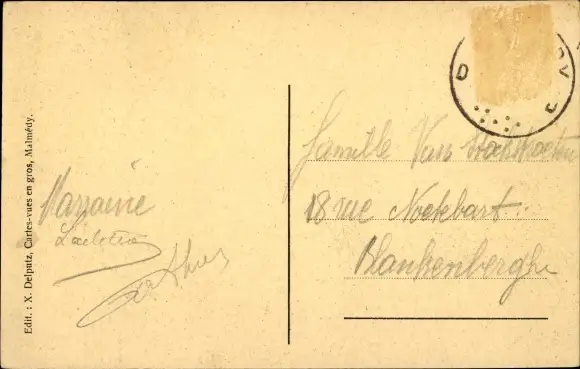 Edit. : X. Delputz, Cartes-vues en gros, Malmédy.
Marraine
Laetitia
Arthur
Famille Van
18 rue Noekbart.
Blankenberghe
D